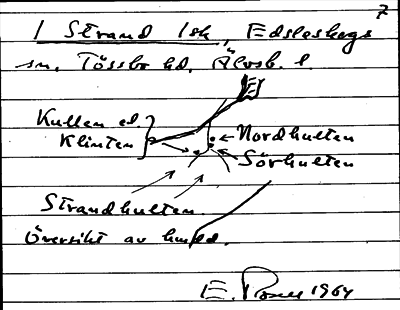 7
1 Strand 1sk, Edsleskogs
sn. Tössbo hd. Älvsb. l.
Kullen el.
Klinten
Nordhulten
Sörhulten
Strandhulten
Översikt av
E. 1964